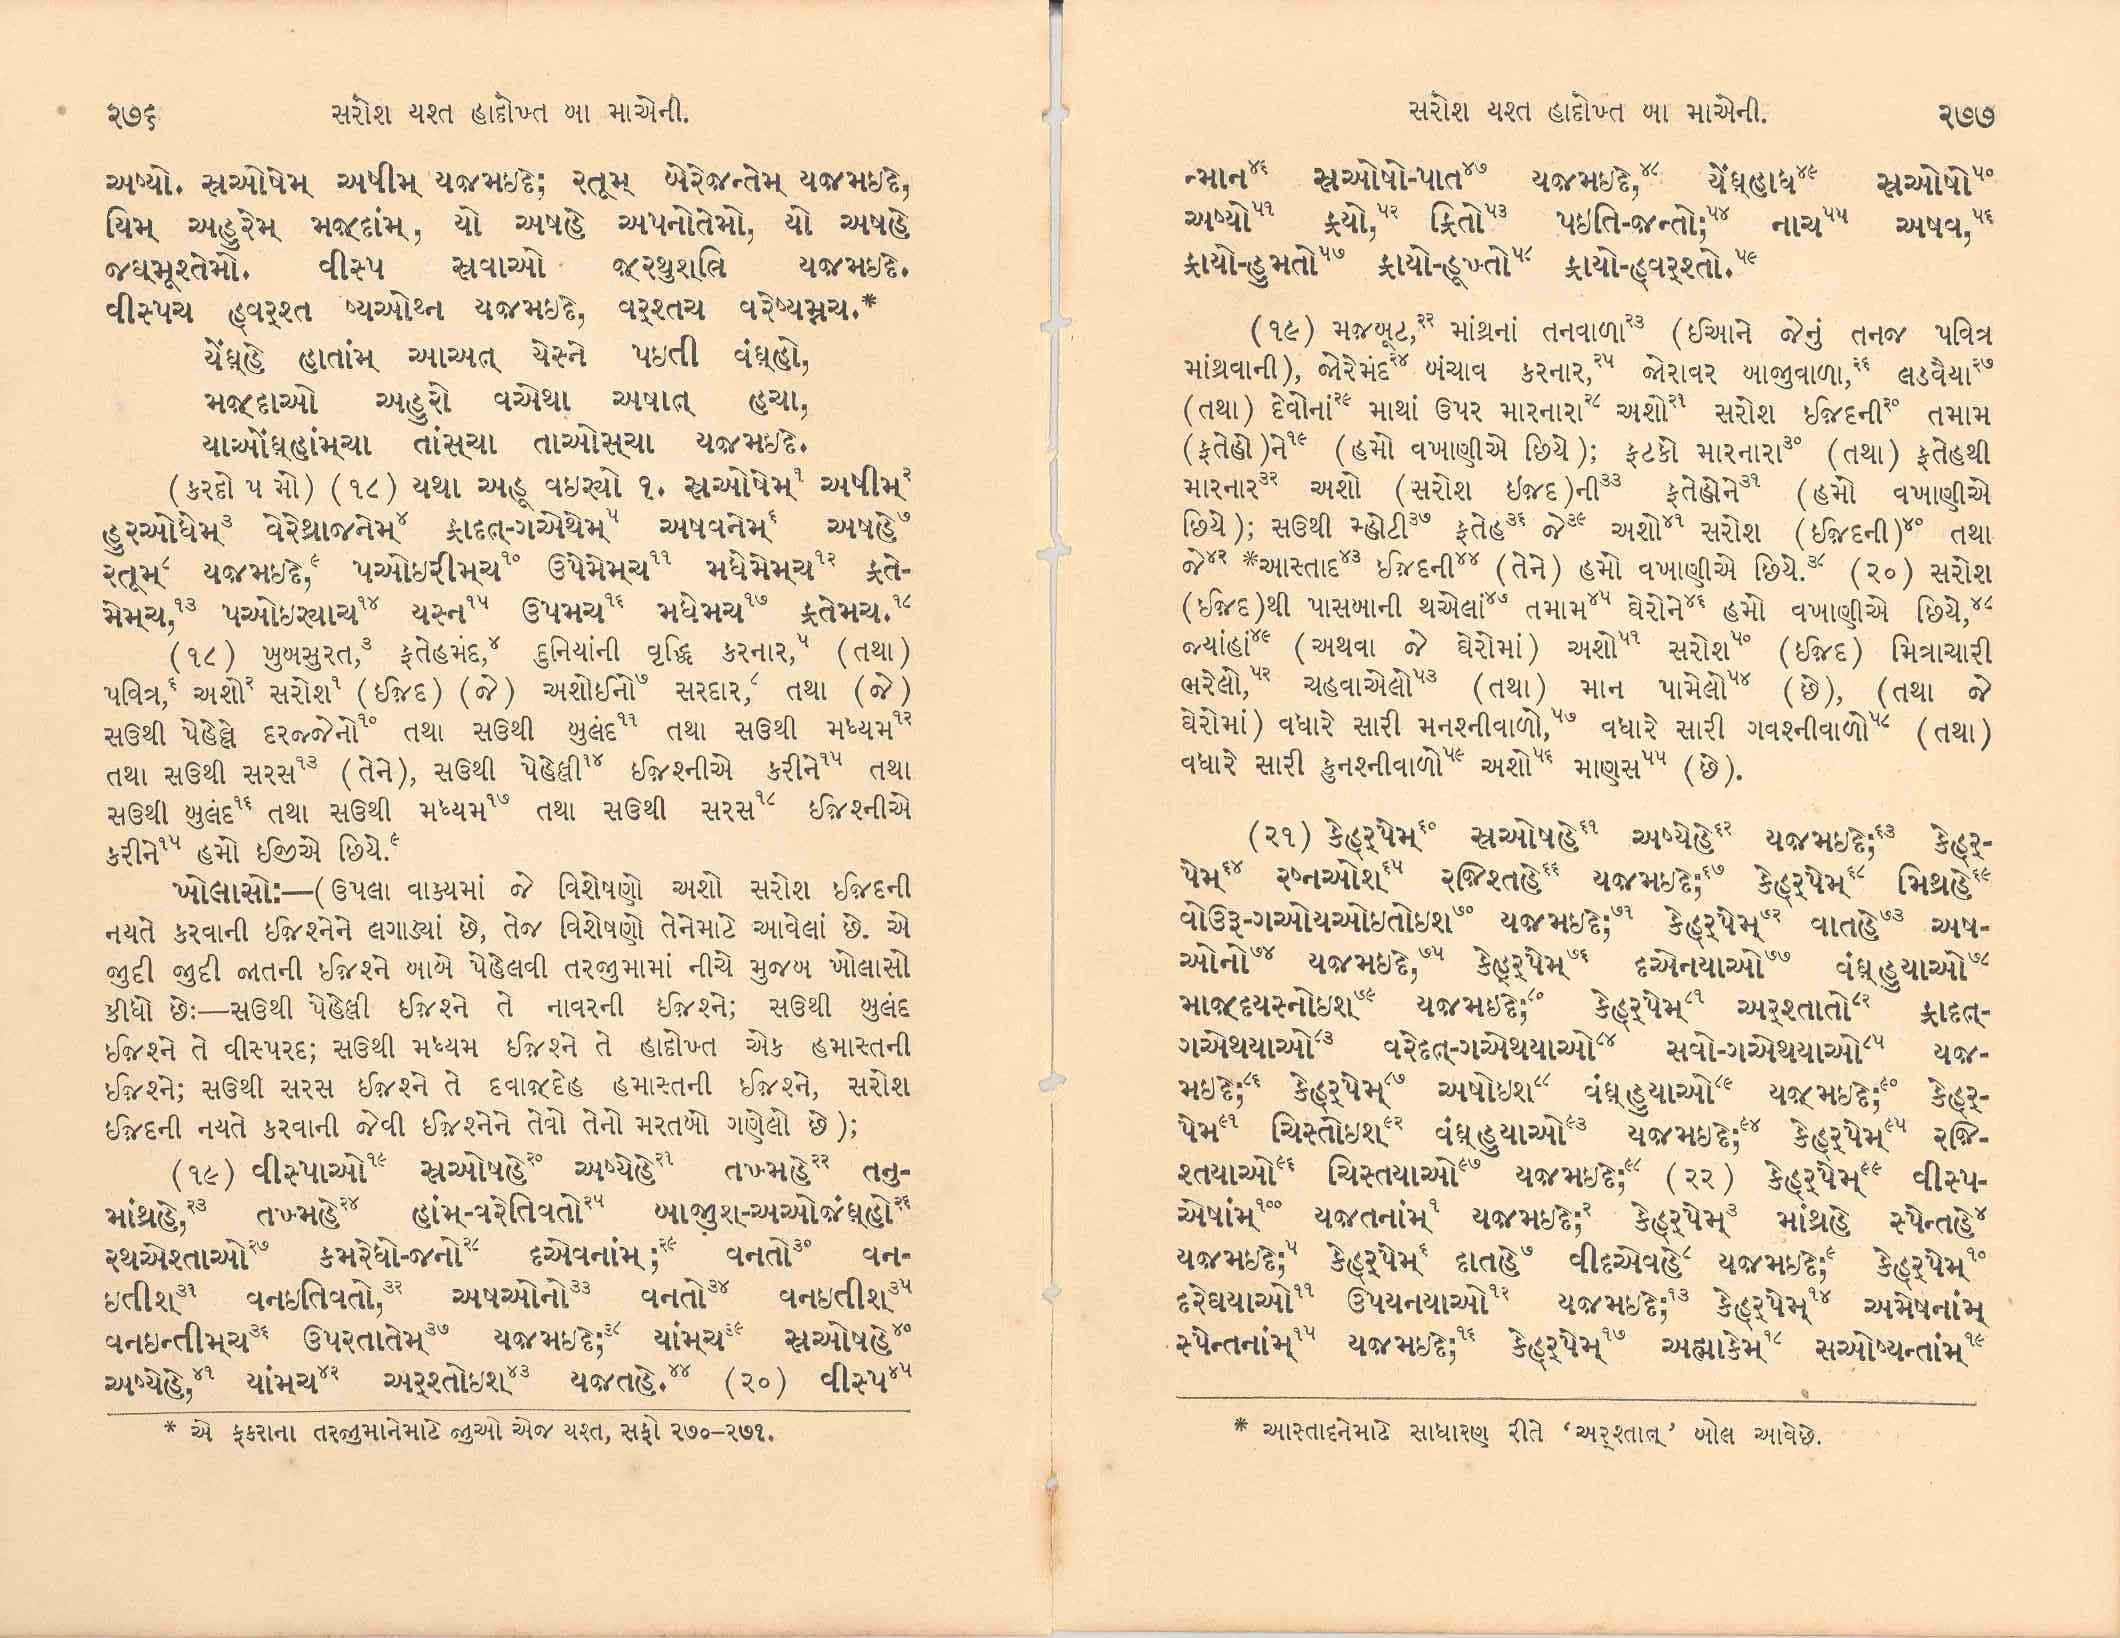 ૨૭૬ સરોશ યશ્ત હાદોખ્ત બા માએની.
અષ્યો. સ્રઓષેમ્ અષીમ્ યજમઇદે; રતૂમ્ બેરેજન્તેમ્ યજમઇદે,
યિમ્ અહુરેમ્ મજ્દાંમ્, યો અષહે અપનોતેમો, યો અષહે
જઘ્મૂશ્તેમો. વીસ્પ સ્રવાઓ જ્રથુશ્ત્રિ યજમઇદે.
વીસ્પચ હ્વર્શ્ત ષ્યઓથ્ન યજમઇદે, વર્શ્તચ વરેષ્યમ્નચ.*
યેંઘ્હે હાતાંમ્ આઅત્ યેસ્ને પઇતી વંઘ્હો,
મજ્દાઓ અહુરો વએથા અષાત્ હચા,
યાઓંઘ્હાંમ્ચા તાંસ્ચા તાઓસ્ચા યજમઇદે.
(કરદો ૫ મો) (૧૮) યથા અહૂ વઇર્યો ૧. સ્રઓષેમ્૧ અષીમ્૨
હુરઓધેમ્૩ વેરેથ્રાજનેમ્૪ ફ્રાદત્-ગએથેમ્૫ અષવનેમ્૬ અષહે૭
રતૂમ્૮ યજમઇદે,૯ પઓઇરીમ્ચ૧૦ ઉપેમેમ્ચ૧૧ મધેમેમ્ચ૧૨ ફ્રતે-
મેમ્ચ,૧૩ પઓઇર્યાચ૧૪ યસ્ન૧૫ ઉપમચ૧૬ મધેમચ૧૭ ફ્રતેમચ.૧૮
(૧૮) ખુબસુરત,૩ ફતેહમંદ,૪ દુનિયાંની વૃદ્ધિ કરનાર,૫ (તથા)
પવિત્ર,૬ અશો૨ સરોશ૧ (ઈજ઼િદ) (જે) અશોઈનો૭ સરદાર,૮ તથા (જે)
સઉથી પેહેલ્લે દરજ્જેનો૧૦ તથા સઉથી બુલંદ૧૧ તથા સઉથી મધ્યમ૧૨
તથા સઉથી સરસ૧૩ (તેને), સઉથી પેહેલી૧૪ ઈજ઼િશ્નીએ કરીને૧૫ તથા
સઉથી બુલંદ૧૬ તથા સઉથી મધ્યમ૧૭ તથા સઉથી સરસ૧૮ ઈજ઼િશ્નીએ
કરીને૧૫ હમો ઈજીએ છિયે.૯
ખોલાસો:—(ઉપલા વાક્યમાં જે વિશેષણો અશો સરોશ ઈજ઼િદની
નયતે કરવાની ઈજ઼િશ્નેને લગાડ્યાં છે, તેજ વિશેષણો તેનેમાટે આવેલાં છે. એ
જીુદી જીુદી જાતની ઈજ઼િશ્ને બાબે પેહેલવી તરજીુમામાં નીચે મુજબ ખોલાસો
કીધો છેઃ—સઉથી પેહેલી ઈજ઼િશ્ને તે નાવરની ઈજ઼િશ્ને; સઉથી બુલંદ
ઈજ઼િશ્ને તે વીસ્પરદ; સઉથી મધ્યમ ઈજ઼િશ્ને તે હાદોખ્ત એક હમાસ્તની
ઈજ઼િશ્ને; સઉથી સરસ ઈજ઼િશ્ને તે દવાજ઼્દેહ હમાસ્તની ઈજ઼િશ્ને, સરોશ
ઈજ઼િદની નયતે કરવાની જેવી ઈજ઼િશ્નેને તેવો તેનો મરતબો ગણેલો છે);
(૧૯) વીસ્પાઓ૧૯ સ્રઓષહે૨૦ અષ્યેહે૨૧ તખ્મહે૨૨ તનુ-
માંથ્રહે,૨૩ તખ્મહે૨૪ હાંમ્-વરેતિવતો૨૫ બાજીુશ્-અઓજંઘ્હો૨૬
રથએશ્તાઓ૨૭ કમરેધો-જનો૨૮ દએવનાંમ્;૨૯ વનતો૩૦ વન-
ઇતીશ્૩૧ વનઇતિવતો,૩૨ અષઓનો૩૩ વનતો૩૪ વનઇતીશ્૩૫
વનઇન્તીમ્ચ૩૬ ઉપરતાતેમ્૩૭ યજમઇદે;૩૮ યાંમ્ચ૩૯ સ્રઓષહે૪૦
અષ્યેહે,૪૧ યાંમ્ચ૪૨ અર્શ્તોઇશ્૪૩ યજતહે.૪૪ (૨૦) વીસ્પ૪૫
* એ ફકરાના તરજીુમાનેમાટે જીુઓ એજ યશ્ત, સફો ૨૭૦–૨૭૧.
સરોશ યશ્ત હાદોખ્ત બા માએની. ૨૭૭
ન્માન૪૬ સ્રઓષો-પાત૪૭ યજમઇદે,૪૮ યેંઘ્હાધ૪૯ સ્રઓષો૫૦
અષ્યો૫૧ ફ્રયો,૫૨ ફ્રિતો૫૩ પઇતિ-જન્તો;૫૪ નાચ૫૫ અષવ,૫૬
ફ્રાયો-હુમતો૫૭ ફ્રાયો-હૂખ્તો૫૮ ફ્રાયો-હ્વર્શ્તો.૫૯
(૧૯) મજબૂટ,૨૨ માંથ્રનાં તનવાળા૨૩ (ઈઆને જેનું તનજ પવિત્ર
માંથ્રવાની), જોરેમંદ૨૪ બંચાવ કરનાર,૨૫ જોરાવર બાજીુવાળા,૨૬ લડવૈયા૨૭
(તથા) દેવોનાં૨૯ માથાં ઉપર મારનારા૨૮ અશો૨૧ સરોશ ઈજ઼િદની૨૦ તમામ
(ફતેહો)ને૧૯ (હમો વખાણીએ છિયે); ફટકો મારનારા૩૦ (તથા) ફતેહથી
મારનાર૩૨ અશો (સરોશ ઇજ઼િદ)ની૩૩ ફતેહોને૩૧ (હમો વખાણીએ
છિયે); સઉથી મ્હોટી૩૭ ફતેહ૩૬ જે૩૯ અશો૪૧ સરોશ (ઈજ઼િદની)૪૦ તથા
જે૪૨ *આસ્તાદ૪૩ ઈજ઼િદની૪૪ (તેને) હમો વખાણીએ છિયે.૩૮ (૨૦) સરોશ
(ઈજ઼િદ)થી પાસબાની થએલાં૪૭ તમામ૪૫ ઘેરોને૪૬ હમો વખાણીએ છિયે,૪૮
જ્યાંહાં૪૯ (અથવા જે ઘેરોમાં) અશો૫૧ સરોશ૫૦ (ઈજ઼િદ) મિત્રાચારી
ભરેલો,૫૨ ચહવાએલો૫૩ (તથા) માન પામેલો૫૪ (છે), (તથા જે
ઘેરોમાં) વધારે સારી મનશ્નીવાળો,૫૭ વધારે સારી ગવશ્નીવાળો૫૮ (તથા)
વધારે સારી કુનશ્નીવાળો૫૯ અશો૫૬ માણસ૫૫ (છે).
(૨૧) કેહર્પેમ્૬૦ સ્રઓષહે૬૧ અષ્યેહે૬૨ યજમઇદે;૬૩ કેહર્-
પેમ્૬૪ રષ્નઓશ્૬૫ રજિશ્તહે૬૬ યજમઇદે;૬૭ કેહર્પેમ્૬૮ મિથ્રહે૬૯
વોઉરૂ-ગઓયઓઇતોઇશ૭૦ યજમઇદે;૭૧ કેહર્પેમ્૭૨ વાતહે૭૩ અષ-
ઓનો૭૪ યજમઇદે,૭૫ કેહર્પેમ્૭૬ દએનયાઓ૭૭ વંઘ્હુયાઓ૭૮
માજ્દયસ્નોઇશ્૭૯ યજમઇદે;૮૦ કેહર્પેમ્૮૧ અર્શ્તાતો૮૨ ફ્રાદત્-
ગએથયાઓ૮૩ વરેદત્-ગએથયાઓ૮૪ સવો-ગએથયાઓ૮૫ યજ-
મઇદે;૮૬ કેહર્પેમ્૮૭ અષોઇશ૮૮ વંઘ્હુયાઓ૮૯ યજમઇદે;૯૦ કેહર્-
પેમ૯૧ ચિસ્તોઇશ્૯૨ વંઘ્હુયાઓ૯૩ યજમઇદે;૯૪ કેહર્પેમ્૯૫ રજિ-
શ્તયાઓ૯૬ ચિસ્તયાઓ૯૭ યજમઇદે;૯૮ (૨૨) કેહર્પેમ્૯૯ વીસ્પ-
એષાંમ્૧૦૦ યજતનાંમ્૧ યજમઇદે;૨ કેહર્પેમ્૩ માંથ્રહે સ્પેન્તહે૪
યજમઇદે;૫ કેહર્પેમ્૬ દાતહે૭ વીદએવહે૮ યજમઇદે;૯ કેહર્પેમ્૧૦
દરેઘયાઓ૧૧ ઉપયનયાઓ૧૨ યજમઇદે;૧૩ કેહર્પેમ્૧૪ અમેષનાંમ્
સ્પેન્તનાંમ્૧૫ યજમઇદે;૧૬ કેહર્પેમ્૧૭ અહ્માકેમ્૧૮ સઓષ્યન્તાંમ્૧૯
* આસ્તાદનેમાટે સાધારણ રીતે ‘અર્શ્તાત્’ બોલ આવેછે.